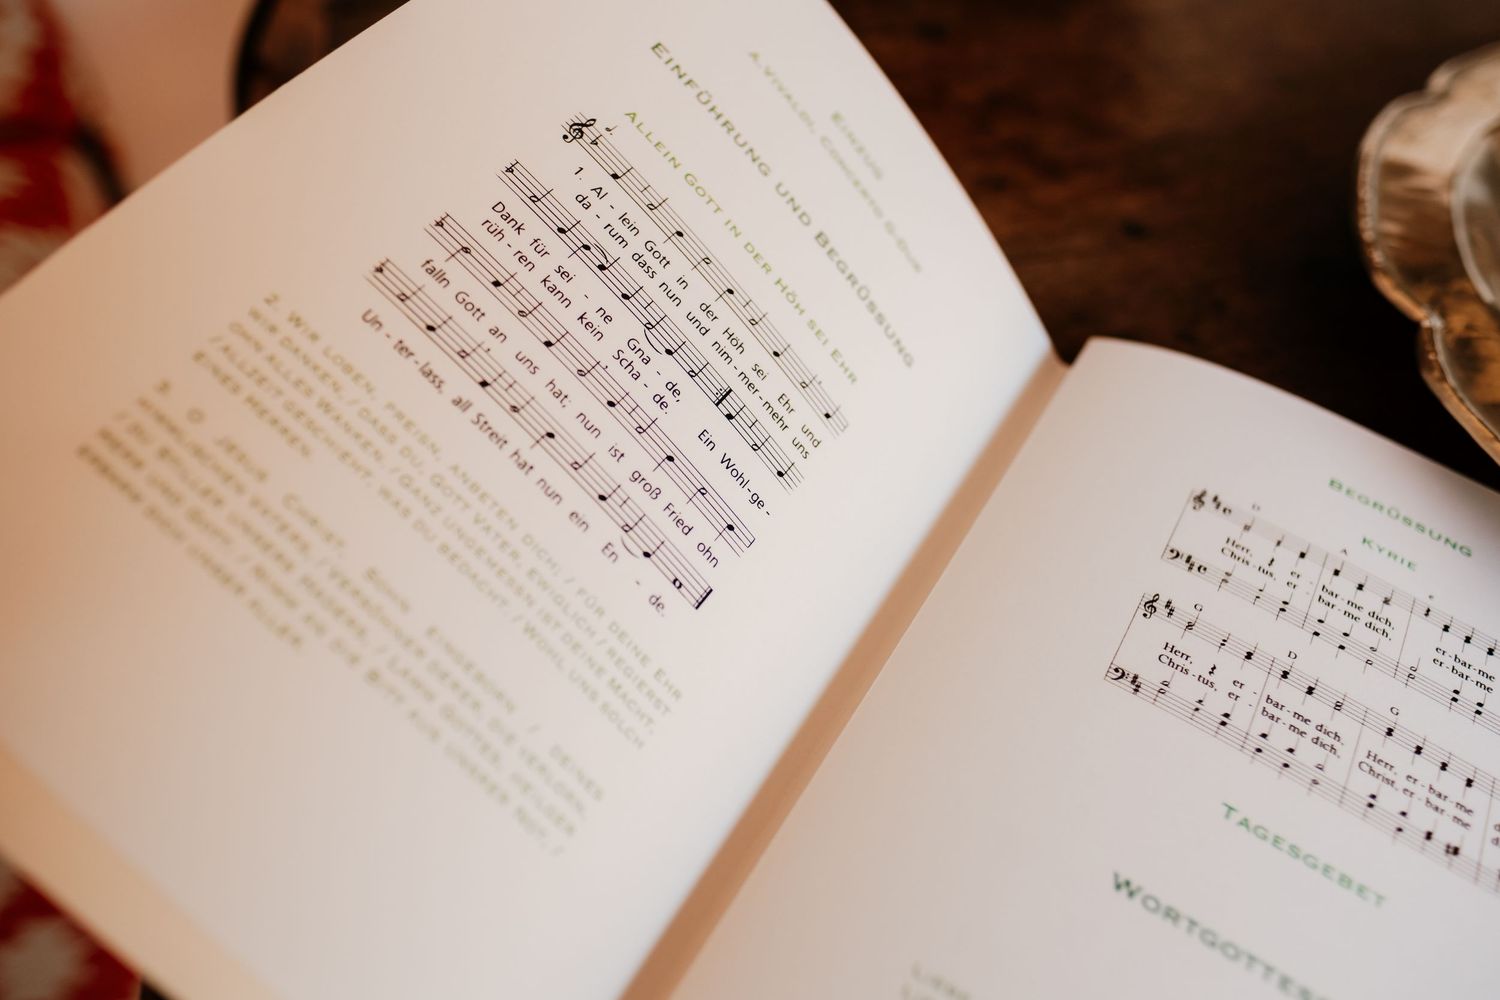 Einzug
A. Vivaldi, Concerto G-Dur
Einführung und Begrüssung
Allein Gott in der Höh sei Ehr
1. Al - lein Gott in der Höh sei Ehr und
da - rum dass nun und nim - mer - mehr uns
Dank für sei - ne Gna - de, Ein Wohl - ge -
rüh - ren kann kein Scha - de.
falln Gott an uns hat; nun ist groß Fried ohn
Un - ter - lass, all Streit hat nun ein En - de.
2. Wir loben, preisn, anbeten dich, / für deine Ehr
wir danken, / dass du, Gott Vater, ewiglich / regierst
ohn alles Wanken. / Ganz ungemessn ist deine Macht,
/ allzeit geschieht, was du bedacht. / Wohl uns solch
eines Herren.
3. O Jesu Christ, Sohn eingeborn / deines
himmlischen Vaters, / versöhner derer, die verlorn,
/ du Stiller unsers Haders, / Lamm Gottes, heilger
Herr und Gott: / nimm an die Bitt aus unsrer Not, /
erbarm dich unser aller.
Begrüssung
Kyrie
D A
Herr, er - bar - me dich, er - bar - me
Chris - tus, er - bar - me dich, er - bar - me
G D G
Herr, er - bar - me dich, Herr, er - bar - me
Chris - tus, er - bar - me dich, Christ, er - bar - me
Tagesgebet